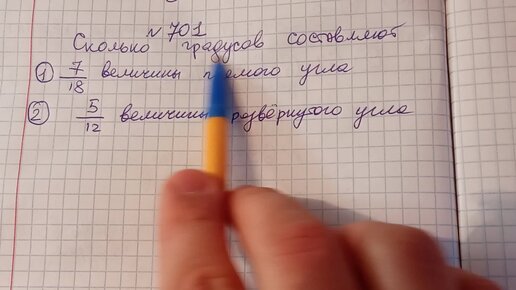 № 701
Сколько градусов составляют
① 7/18 величины прямого угла
② 5/12 величины развёрнутого угла